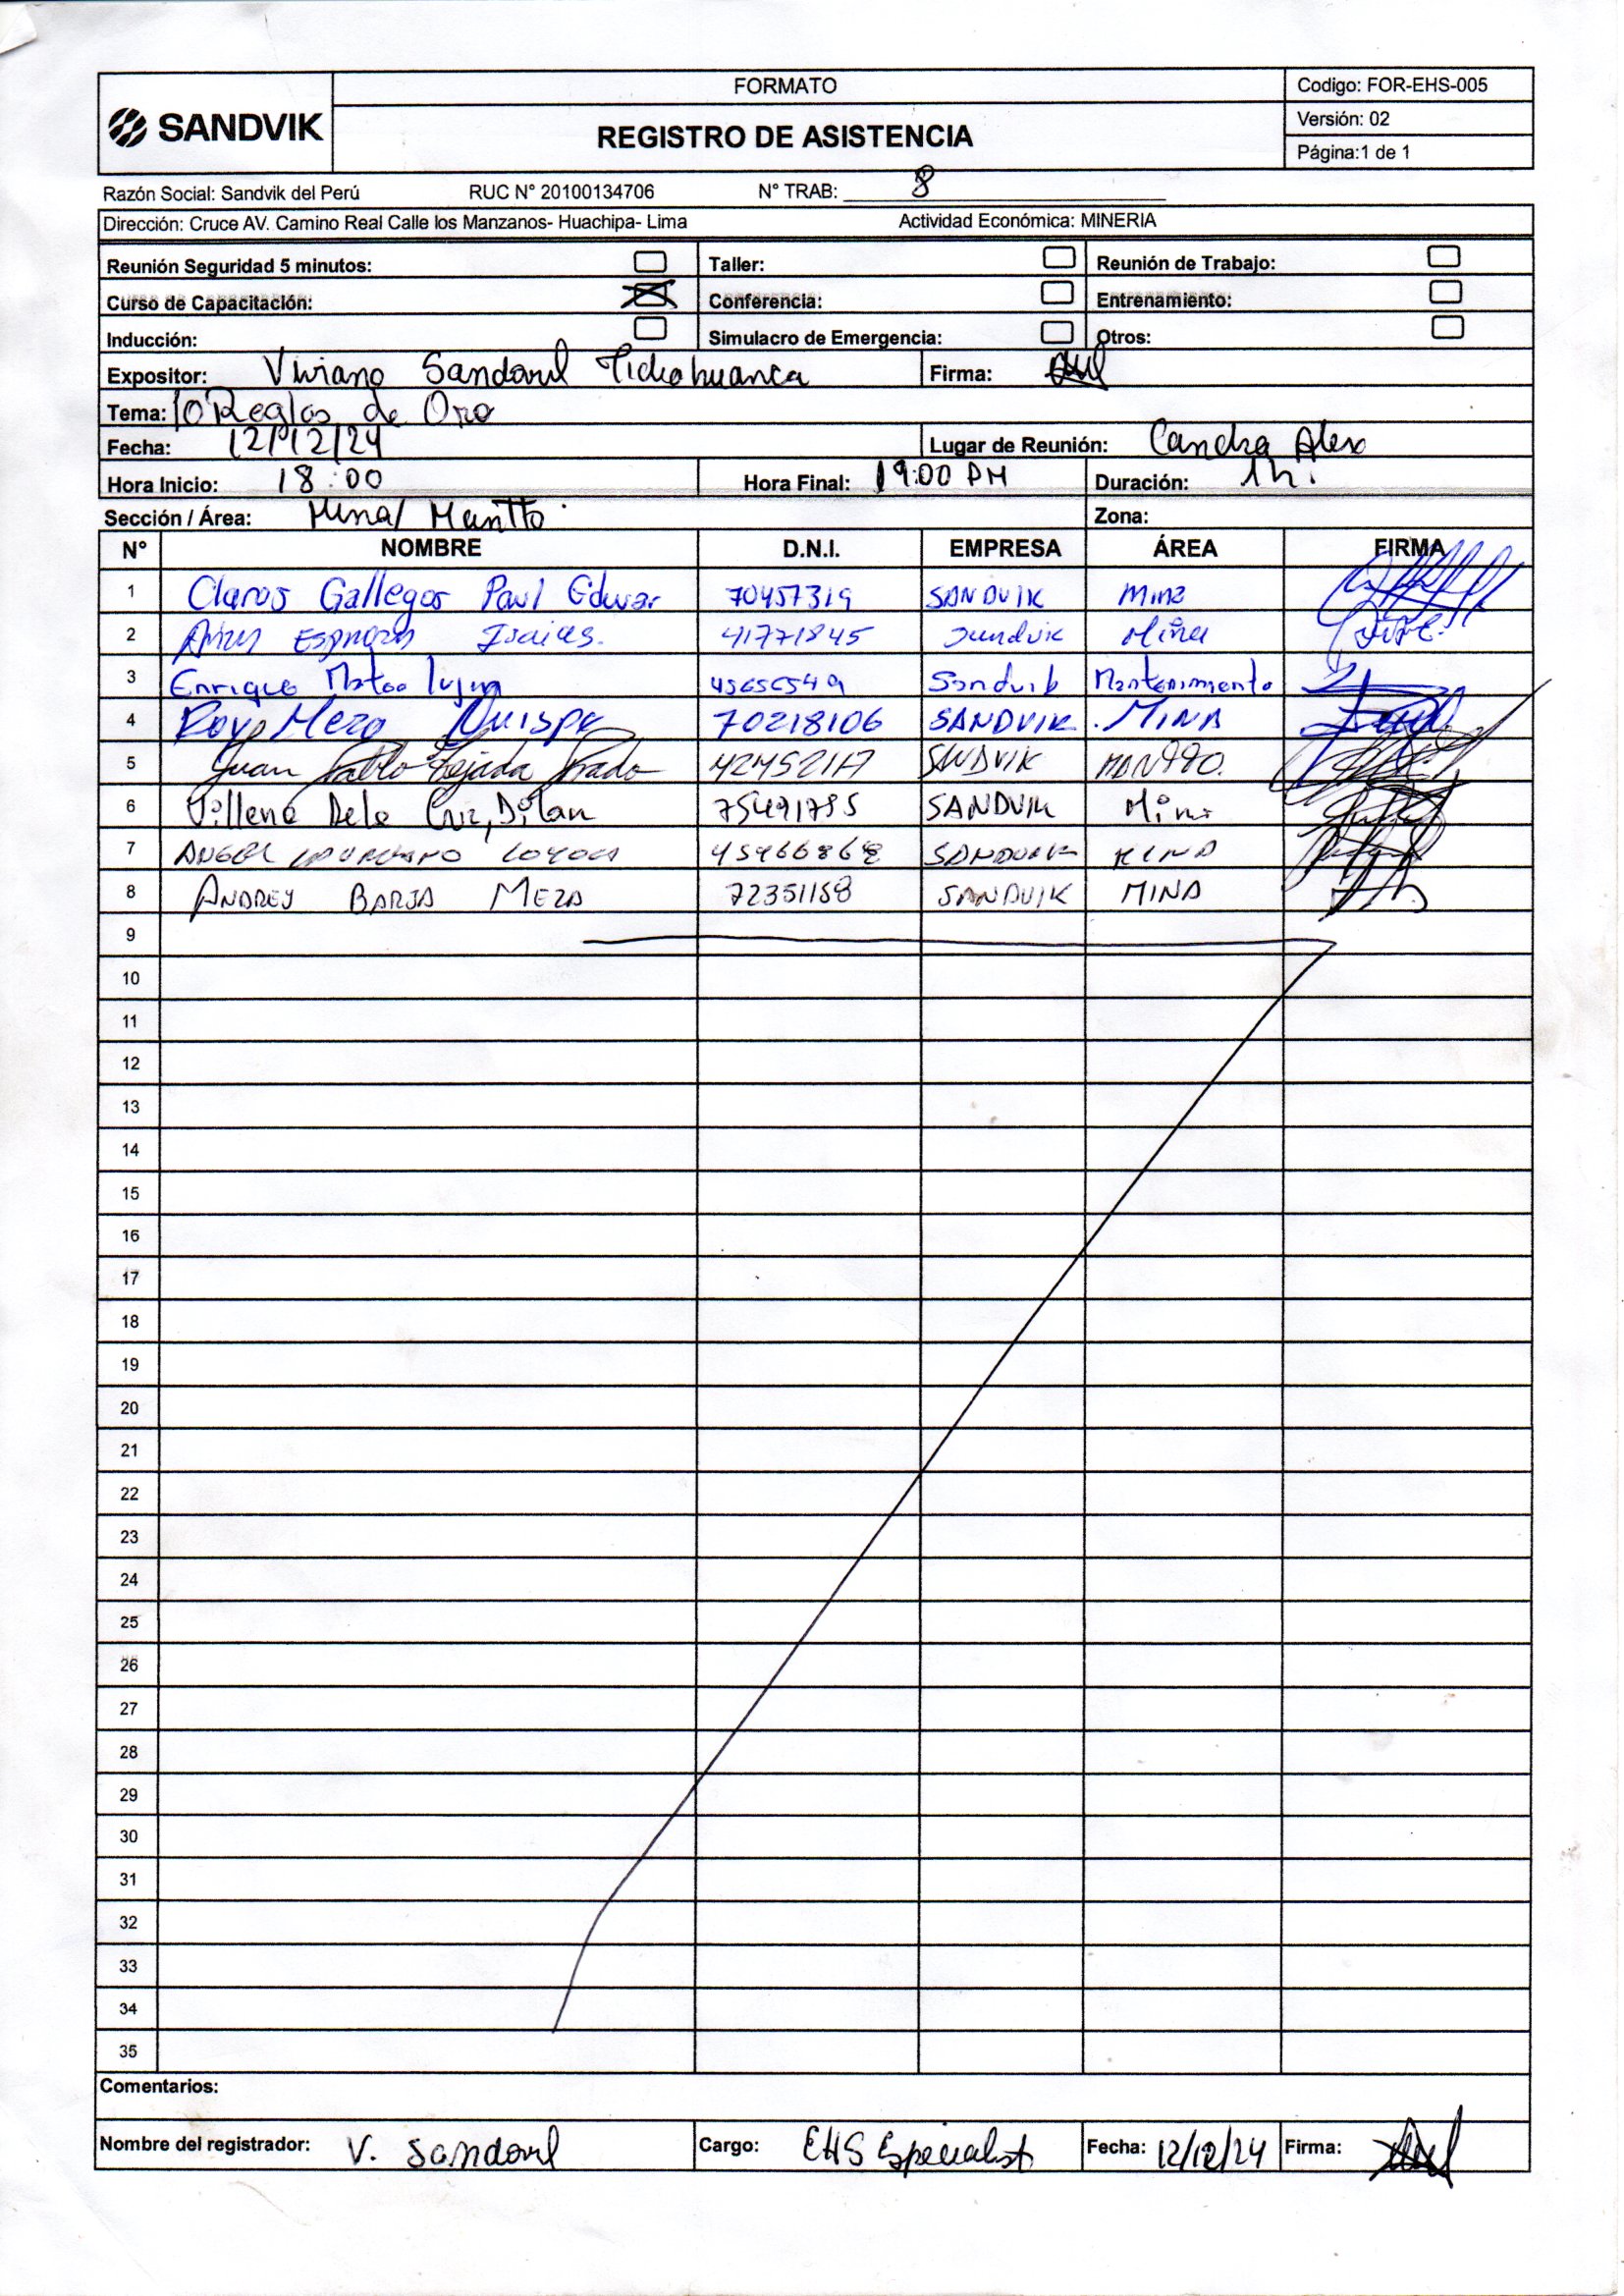 SANDVIK
FORMATO
REGISTRO DE ASISTENCIA
Codigo: FOR-EHS-005
Versión: 02
Página:1 de 1
Razón Social: Sandvik del Perú RUC N° 20100134706 N° TRAB: 8
Dirección: Cruce AV. Camino Real Calle los Manzanos- Huachipa- Lima Actividad Económica: MINERIA
Reunión Seguridad 5 minutos: Taller: Reunión de Trabajo:
Curso de Capacitación: Conferencia: Entrenamiento:
Inducción: Simulacro de Emergencia: Otros:
Expositor: Viviano Sandoval Ticliahuanca Firma:
Tema: 10 Reglas de Oro
Fecha: 12/12/24 Lugar de Reunión: Cancha
Hora Inicio: 18:00 Hora Final: 19:00 PM Duración: 1h.
Sección / Área: Mina/ Mantto. Zona:
N° NOMBRE D.N.I. EMPRESA ÁREA FIRMA
1 Claros Gallegos Paul Edwar 70457319 SANDVIK Mina
2 Espinoza Isaias. 41771845 Sandvik Mina
3 Enrique Mateo lujan Sandvik Mantenimiento
4 Roy Meza Quispe 70218106 SANDVIK. MINA
5 Juan Pablo Tejada Prado SANDVIK MANTTO.
6 Villena Dela Cruz, Dilan 75491795 SANDVIK Mina
7 ANGEL LOYOLA SANDVIK MINA
8 ANDREY BARJA MEZA 72351158 SANDVIK MINA
9
10
11
12
13
14
15
16
17
18
19
20
21
22
23
24
25
26
27
28
29
30
31
32
33
34
35
Comentarios:
Nombre del registrador: V. Sandoval Cargo: EHS Especialist Fecha: 12/12/24 Firma: